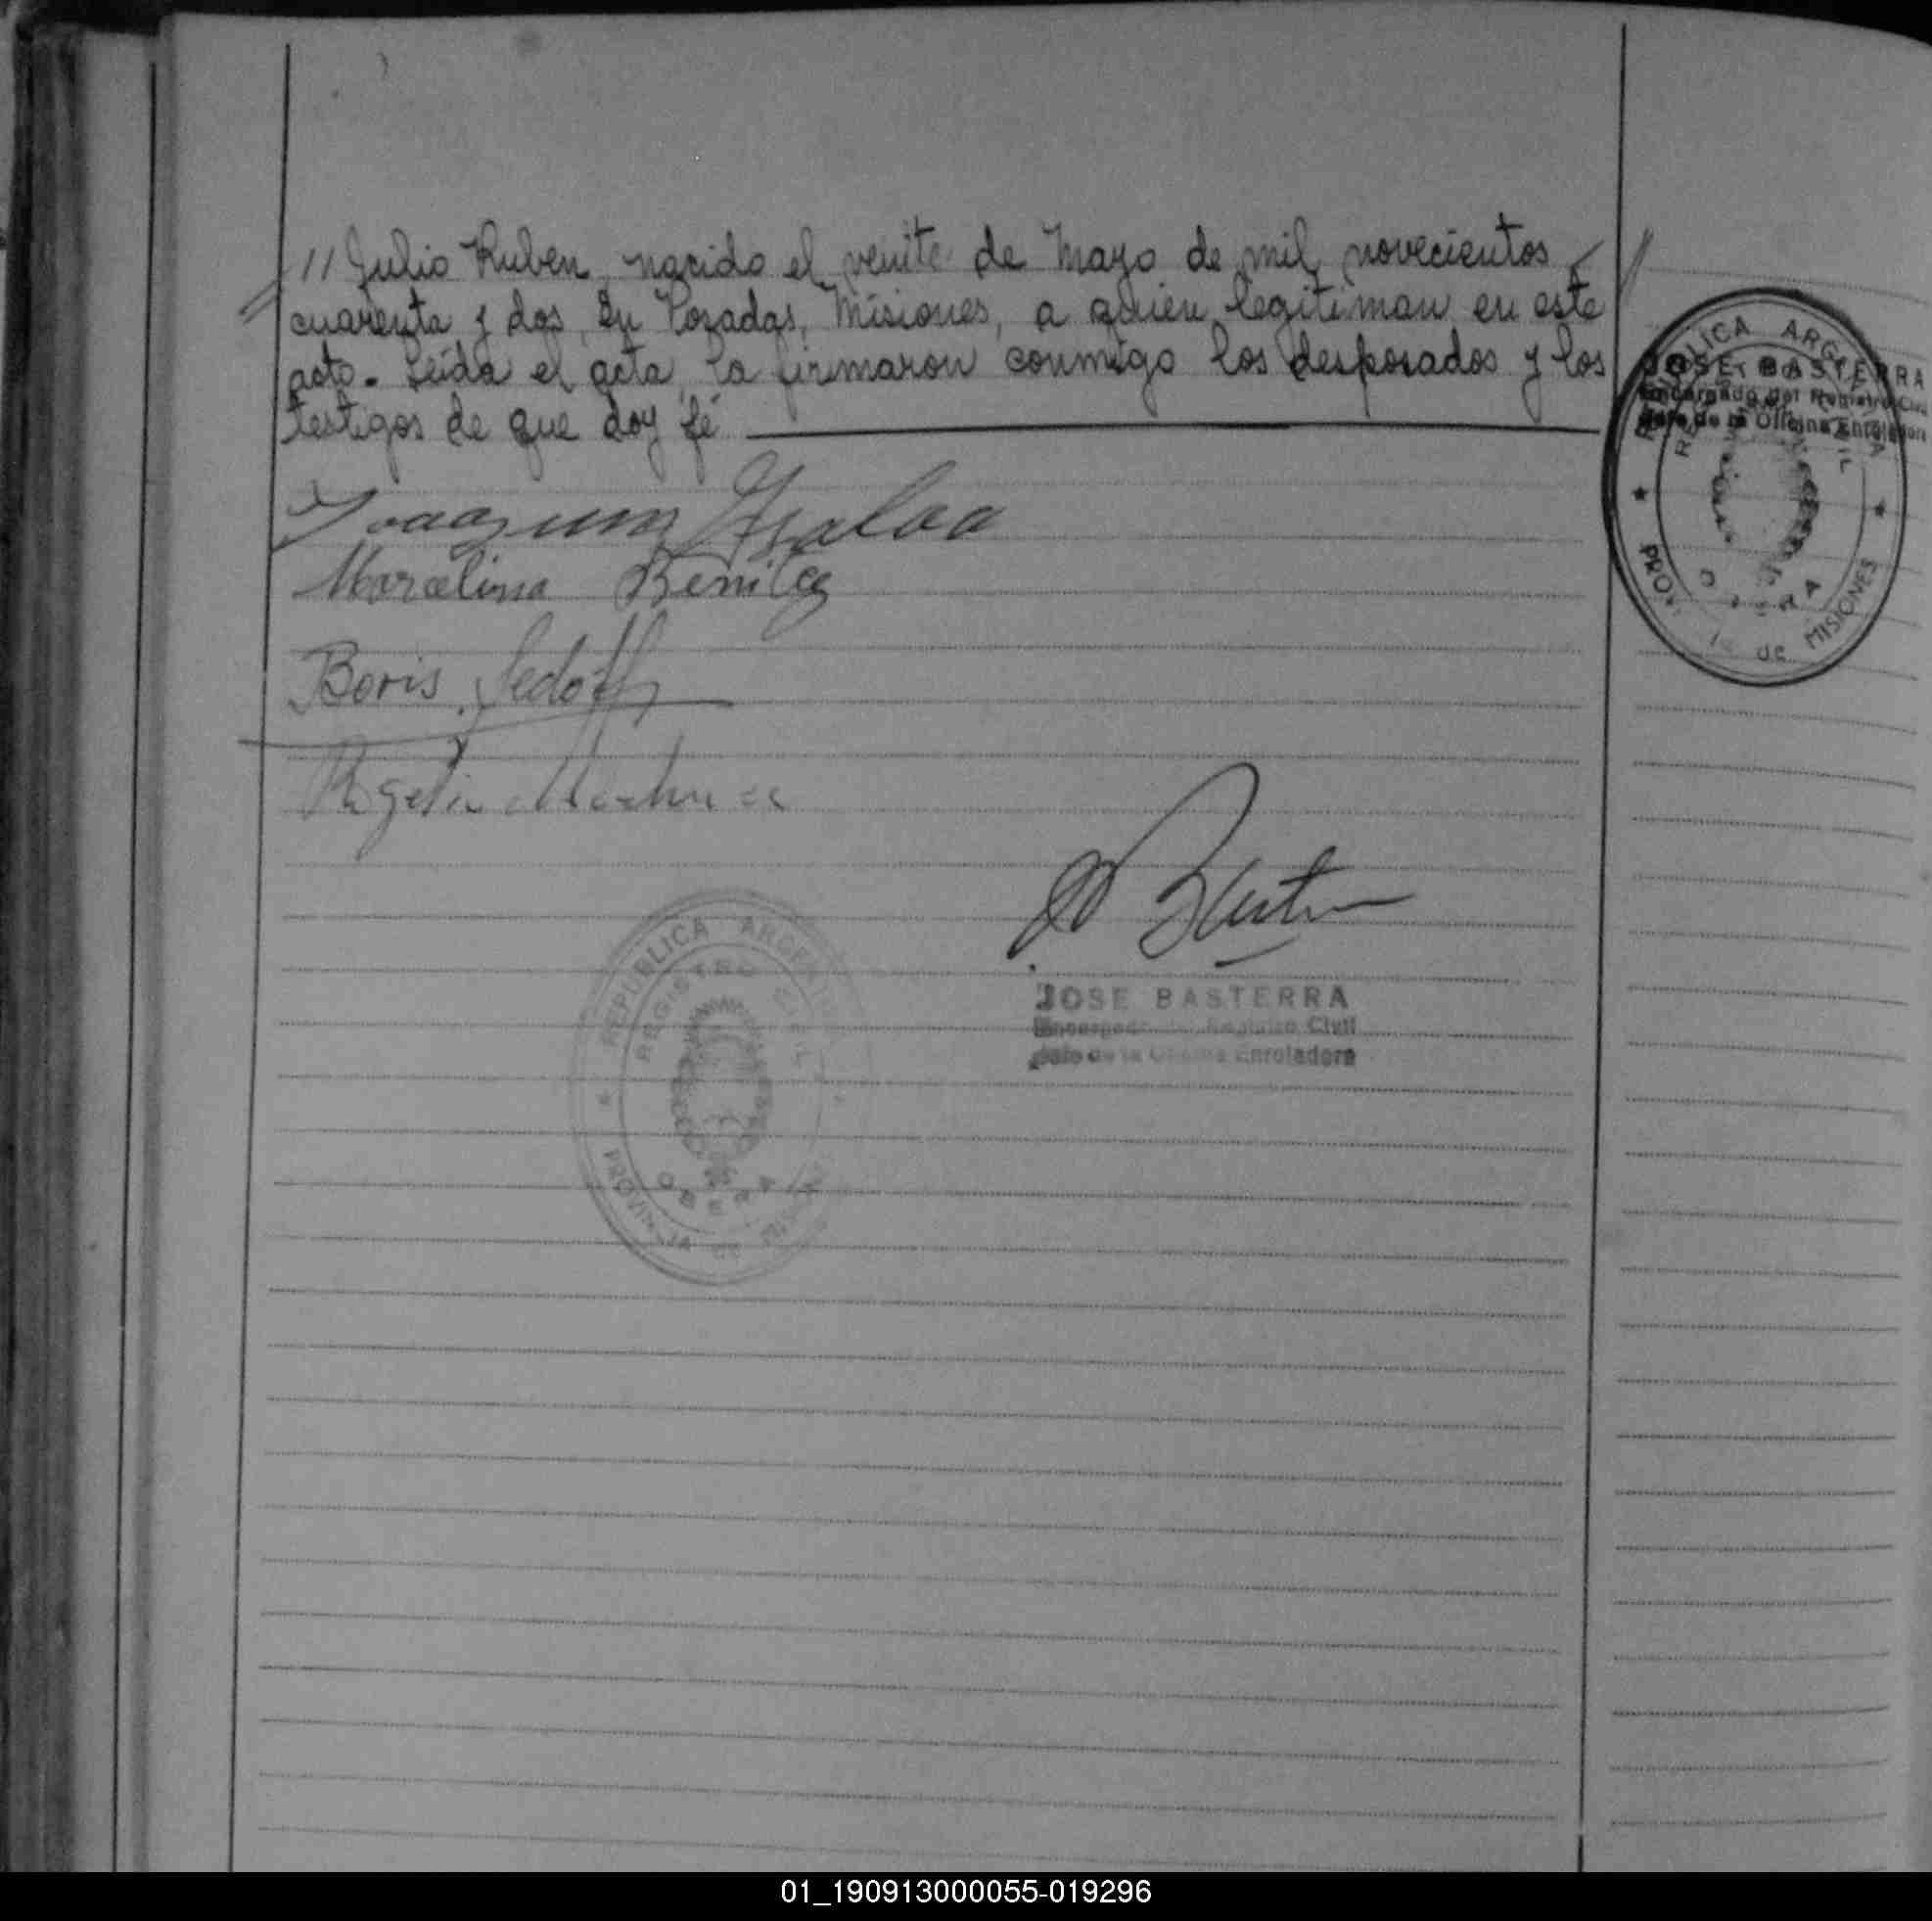 // Julio Ruben, nacido el veinte de Mayo de mil novecientos
cuarenta y dos, En Posadas, Misiones, a quien legitiman en este
acto. Leída el acta, la firmaron conmigo los desposados y los
testigos de que doy fé
Joaquim
Marcelina Benitez
Boris Sedoff
JOSE BASTERRA
Encargado del Registro Civil
Jefe de la Oficina Enroladora
REPUBLICA ARGENTINA
REGISTRO CIVIL
OBERA
PROVINCIA de MISIONES
JOSE BASTERRA
Encargado del Registro Civil
Jefe de la Oficina Enroladora
REPUBLICA ARGENTINA
REGISTRO CIVIL
OBERA
PROVINCIA de MISIONES
01_190913000055-019296